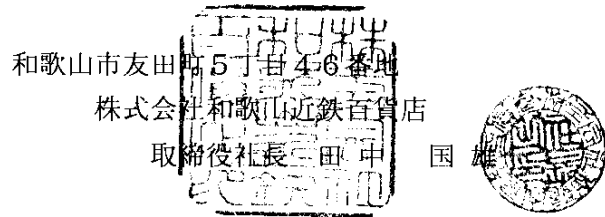 和歌山市友田町5丁目46番地
株式会社和歌山近鉄百貨店
取締役社長 田中 国雄